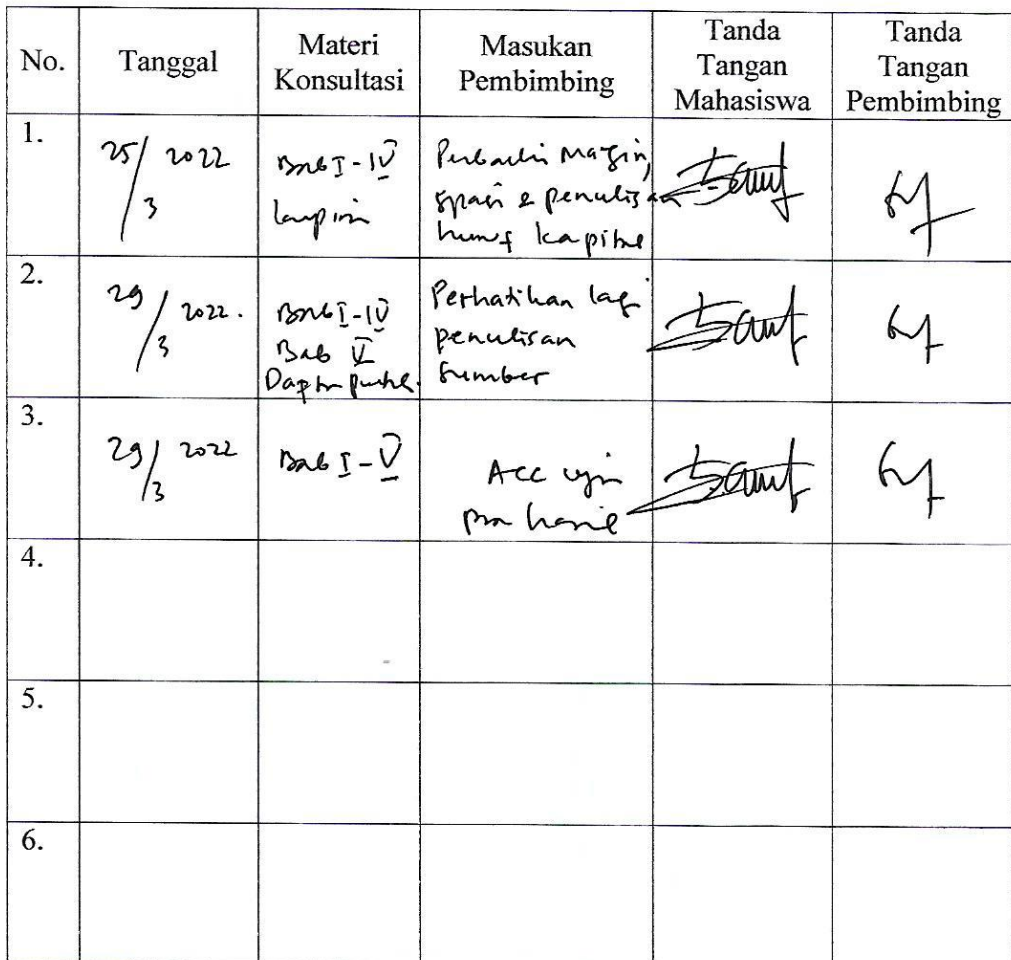 No.
Tanggal
Materi
Konsultasi
Masukan
Pembimbing
Tanda
Tangan
Mahasiswa
Tanda
Tangan
Pembimbing
1.
25/3 2022
Bab I - IV
Perbaiki Margin,
spasi & penulisan
huruf kapital
2.
29/3 2022.
Bab I - IV
Bab V
Daptar
Perhatikan lagi
penulisan
sumber
3.
29/3 2022
Bab I - V
Acc ujin
pra hasil
4.
5.
6.